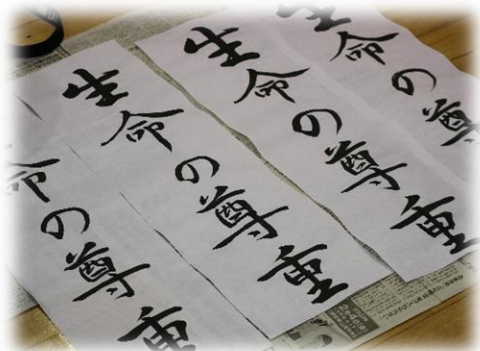 生命の尊
生命の尊重
生命の尊重
命の尊重